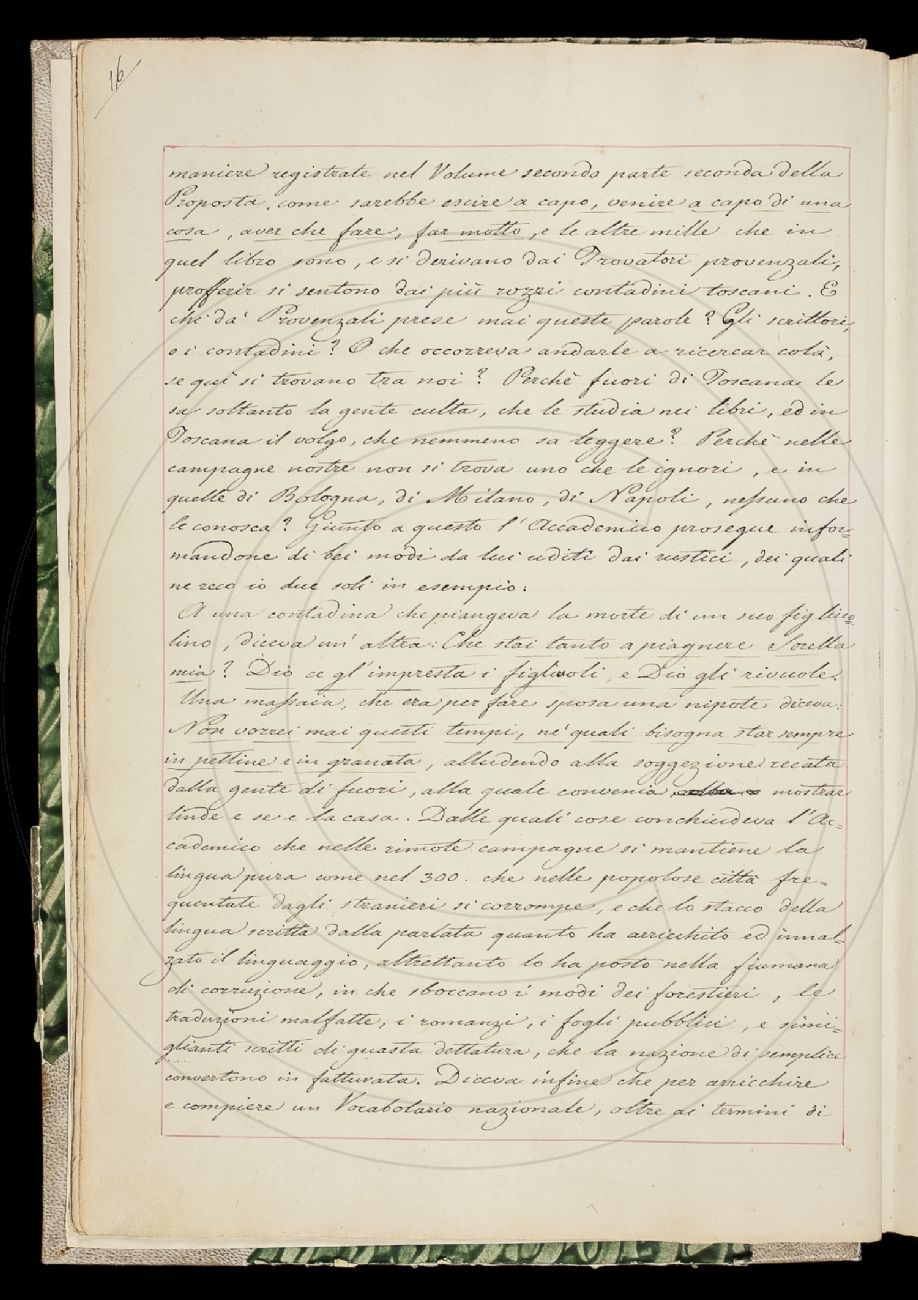 16
maniere registrate nel Volume secondo parte seconda della
Proposta, come sarebbe escire a capo, venire a capo di una
cosa, aver che fare, far motto, e le altre mille che in
quel libro sono, e si derivano dai Trovatori provenzali,
profferir si sentono dai più rozzi contadini toscani. E
chi da' Provenzali prese mai queste parole? Gli scrittori,
o i contadini? O che occorreva andarle a ricercar colà,
se quì si trovano tra noi? Perchè fuori di Toscana le
sa soltanto la gente culta, che le studia nei libri, ed in
Toscana il volgo, che nemmeno sa leggere? Perchè nelle
campagne nostre non si trova uno che le ignori, e in
quelle di Bologna, di Milano, di Napoli, nessuno che
le conosca? Giunto a questo l'Accademico prosegue infor=
mandone di bei modi da lui uditi dai rustici, dei quali
ne reco io due soli in esempio:
A una contadina che piangeva la morte di un suo figliuo=
lino, diceva un' altra: Che stai tanto a piagnere Sorella
mia? Dio ce gl'impresta i figliuoli, e Dio gli rivuole.
Una massaia, che era per fare sposa una nipote diceva:
Non vorrei mai questi tempi, ne' quali bisogna star sempre
in pettine e in granata, alludendo alla soggezione recata
dalla gente di fuori, alla quale convenia mostrar
linde e se e la casa. Dalle quali cose conchiudeva l'Ac=
cademico che nelle rimote campagne si mantiene la
lingua pura come nel 300. che nelle popolose città fre=
quentate dagli stranieri si corrompe, e che lo stacco della
lingua scritta dalla parlata quanto ha arricchito ed innal=
zato il linguaggio, altrettanto lo ha posto nella fiumana
di corruzione, in che sboccano i modi dei forestieri, le
traduzioni malfatte, i romanzi, i fogli pubblici, e simi=
glianti scritti di guasta dettatura, che la nazione di semplice
convertono in fatturata. Diceva infine che per arricchire
e compiere un Vocabolario nazionale, oltre ai termini di